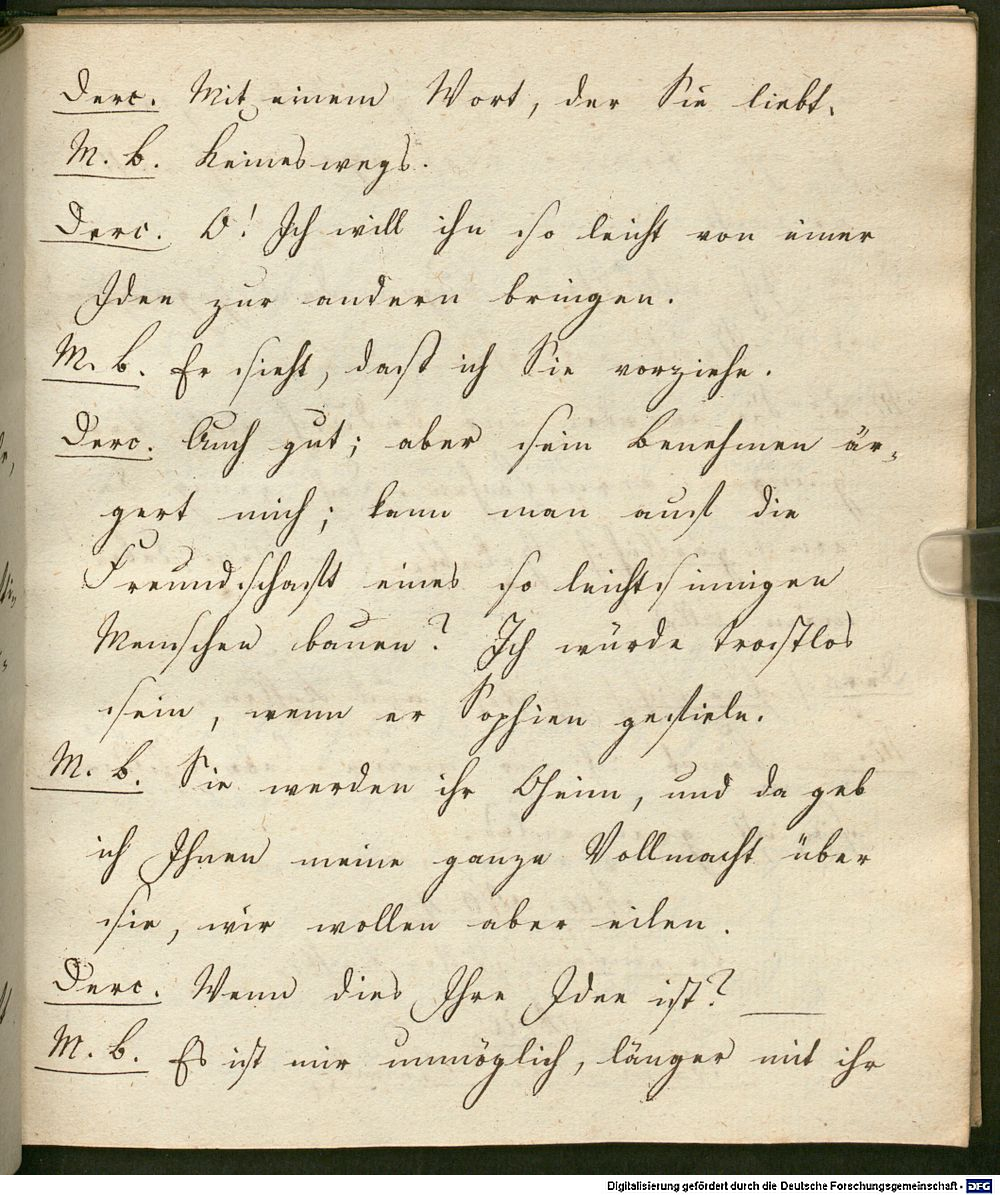 Derc. Mit einem Wort, der Sie liebt.
M. B. Keineswegs.
Derc. O! Ich will ihn so leicht von einer
Idee zur andern bringen.
M. B. Er sieht, dasst ich Sie vorziehe.
Derc. Auch gut; aber sein Benehmen är-
gert mich; kann man auf die
Freundschaft eines so leichtsinnigen
Menschen bauen? Ich würde trostlos
sein, wenn er Sophien gefiele.
M. B. Sie werden ihr Oheim, und da geb
ich Ihnen meine ganze Vollmacht über
sie, wir wollen aber eilen.
Derc. Wenn dies Ihre Idee ist? —
M. B. Es ist mir unmöglich, länger mit ihr
Digitalisierung gefördert durch die Deutsche Forschungsgemeinschaft - DFG